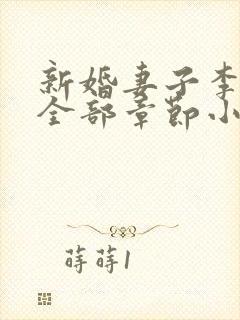 新婚妻子李
全部章节小
蒔蒔1